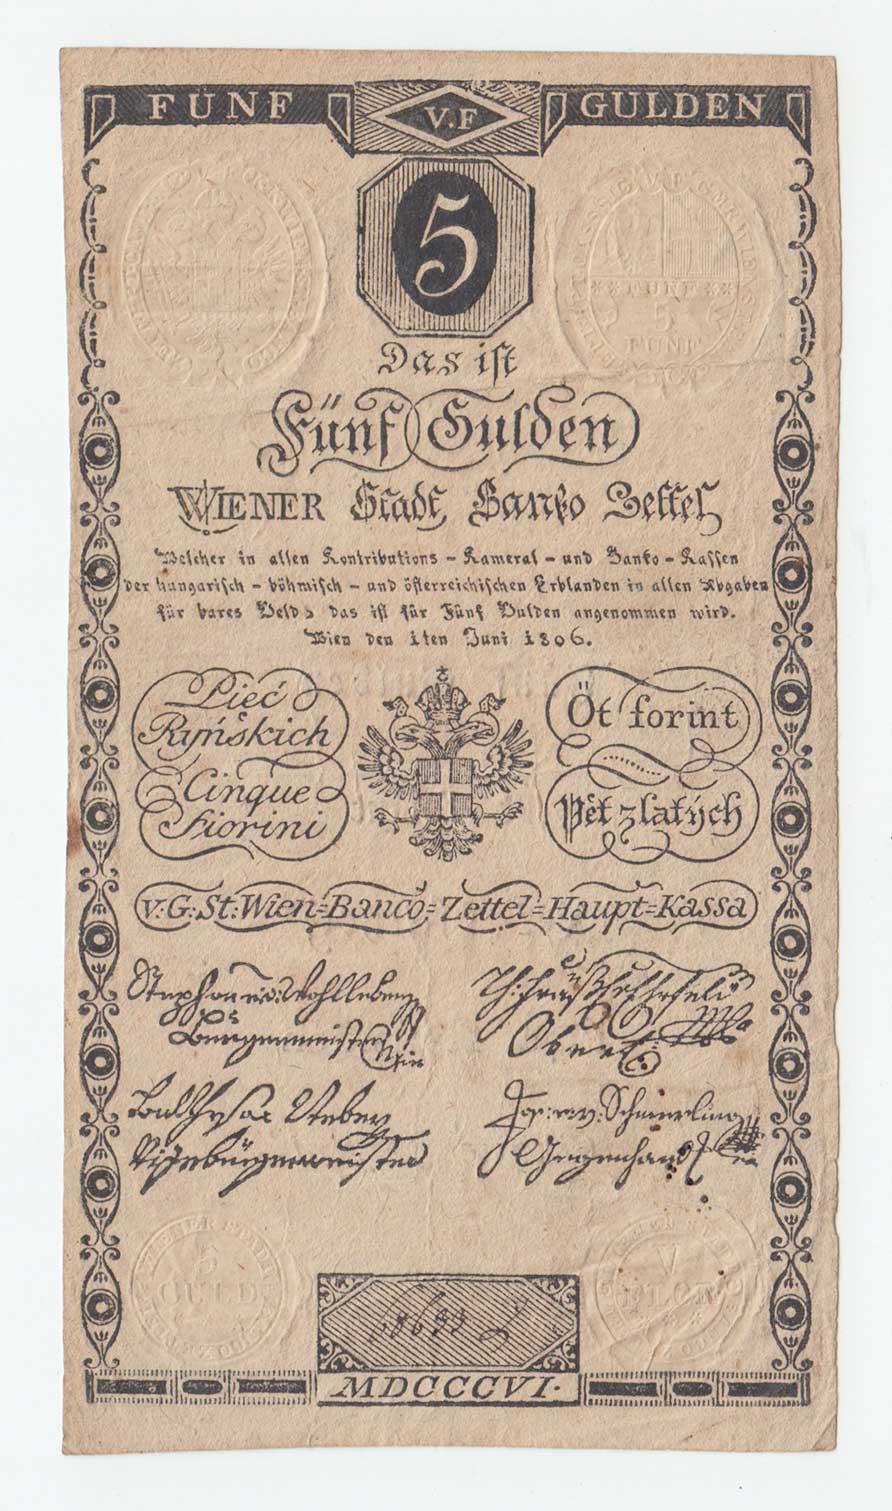 FÜNF V.F GULDEN
5
FÜNF
5
FÜNF
Das ist
Fünf Gulden
WIENER Stadt Banko Zettel
Welcher in allen Kontributions - Kameral - und Banko - Kassen
der hungarisch - böhmisch - und österreichischen Erblanden in allen Abgaben
für bares Geld, das ist für Fünf Gulden angenommen wird.
Wien den 1ten Juni 1806.
Pieć
Ryńskich
Cinque
Fiorini
Öt forint
Pět zlatých
V: G: St: Wien=Banco=Zettel=Haupt=Kassa
Stephan Wohlleben
Burgermeister
Obereinnehmer
Vizebürgermeister
Gegenhand
5
GULD
V
FLOR
MDCCCVI.